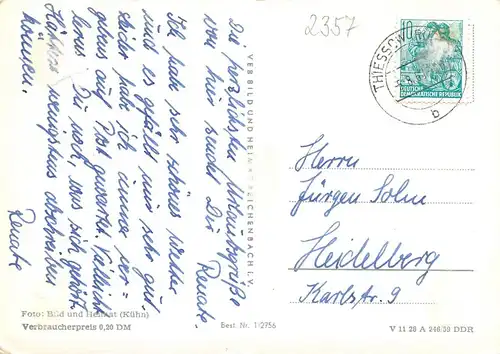 Die herzlichsten Urlaubsgrüße
von hier sendet Dir Renate.
Ich habe sehr schönes Wetter
und es gefällt mir sehr gut.
Leider hab ich immer ver=
gebens auf Post gewartet. Vielleicht
lernst Du noch, was sich gehört.
Hättest wenigstens abschreiben
können.
Renate
VEB BILD UND HEIMAT REICHENBACH I. V.
2357
THIESSOW
b
10
DEUTSCHE
DEMOKRATISCHE REPUBLIK
Herrn
Jürgen Solm
Heidelberg
Karlstr. 9
Foto: Bild und Heimat (Kühn)
Verbraucherpreis 0,20 DM
Best. Nr. 1/2756
V 11 28 A 246/59 DDR